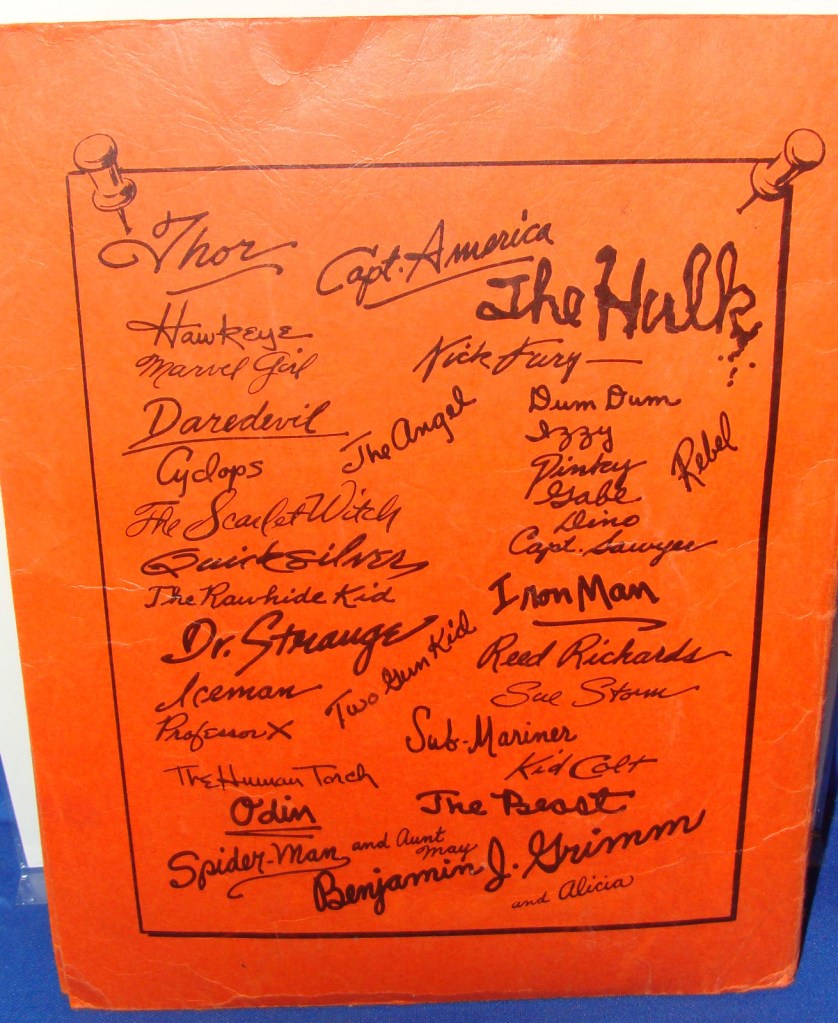 Thor
Capt. America
The Hulk
Hawkeye
Marvel Girl
Nick Fury
Daredevil
The Angel
Dum Dum
Izzy
Rebel
Cyclops
Pinky
Gabe
The Scarlet Witch
Dino
Capt. Sawyer
Quicksilver
The Rawhide Kid
Iron Man
Dr. Strange
Two Gun Kid
Reed Richards
Iceman
Sue Storm
Professor X
Sub-Mariner
The Human Torch
Kid Colt
Odin
The Beast
Spider-Man and Aunt May
Benjamin J. Grimm
and Alicia